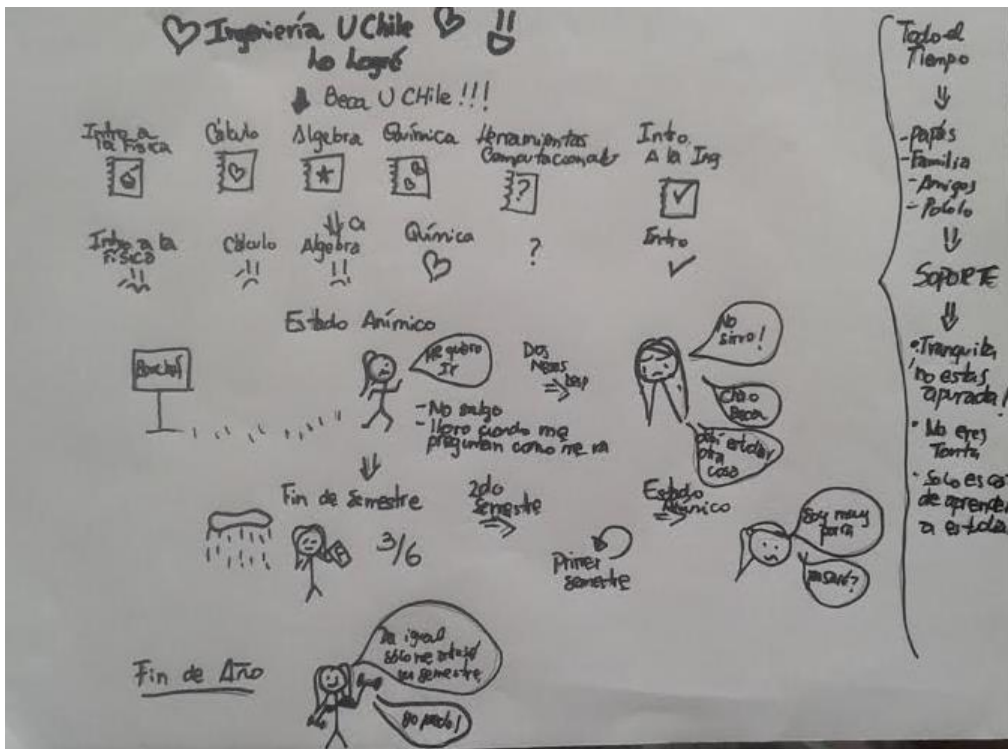 Ingeniería UChile
Lo Logré
Beca U CHile!!!
Intro a
la Física
Cálculo
Álgebra
Química
Herramientas
Computacionales
Intro.
A la Ing
?
Intro a la
Física
Cálculo
Algebra
Química
?
Intro
Estado Anímico
Me quiero
Ir
- No salgo
- lloro cuando me
preguntan como me va
Dos
Meses
Desp
No
sirvo!
Chao
Beca
estudiar
otra
cosa
Fin de Semestre
3/6
2do
Semestre
Primer
semestre
Estado
Anímico
Soy muy
pasaré?
Fin de Año
Da igual
sólo me atrasé
un semestre
yo puedo!
Todo el
Tiempo
- Papás
- Familia
- Amigos
- Pololo
SOPORTE
• Tranquila
no estas
apurada!
• No eres
Tonta
• Solo es
de aprender
a estudiar